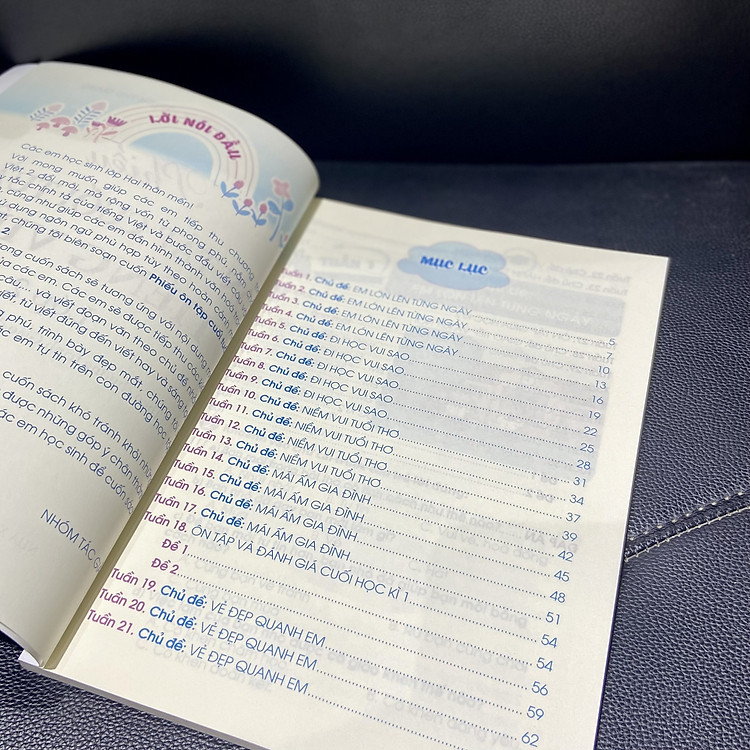 LỜI NÓI ĐẦU
Các em học sinh lớp Hai thân mến!
Với mong muốn giúp các em tiếp thu chương
Việt 2 đổi mới, mở rộng vốn từ phong phú, nắm
tắc chính tả của tiếng Việt và bước đầu viết
cũng như giúp các em dần hình thành văn hoá
dụng ngôn ngữ phù hợp tùy theo hoàn cảnh
chúng tôi biên soạn cuốn Phiếu ôn tập cuối
2
cuốn sách sẽ tương ứng với nội dung
của các em. Các em sẽ được tiếp thu các
câu... và viết đoạn văn theo chủ đề
viết, từ viết đúng đến viết hay và sáng
phú, trình bày đẹp mắt, chúng tôi
các em tự tin trên con đường học
cuốn sách khó tránh khỏi những
được những góp ý chân thành
các em học sinh để cuốn sách
NHÓM TÁC GIẢ
MỤC LỤC
Tuần 1. Chủ đề: EM LỚN LÊN TỪNG NGÀY 5
Tuần 2. Chủ đề: EM LỚN LÊN TỪNG NGÀY 7
Tuần 3. Chủ đề: EM LỚN LÊN TỪNG NGÀY 10
Tuần 4. Chủ đề: EM LỚN LÊN TỪNG NGÀY 13
Tuần 5. Chủ đề: ĐI HỌC VUI SAO 16
Tuần 6. Chủ đề: ĐI HỌC VUI SAO 19
Tuần 7. Chủ đề: ĐI HỌC VUI SAO 22
Tuần 8. Chủ đề: ĐI HỌC VUI SAO 25
Tuần 9. Chủ đề: ĐI HỌC VUI SAO 28
Tuần 10. Chủ đề: NIỀM VUI TUỔI THƠ 31
Tuần 11. Chủ đề: NIỀM VUI TUỔI THƠ 34
Tuần 12. Chủ đề: NIỀM VUI TUỔI THƠ 37
Tuần 13. Chủ đề: NIỀM VUI TUỔI THƠ 39
Tuần 14. Chủ đề: MÁI ẤM GIA ĐÌNH 42
Tuần 15. Chủ đề: MÁI ẤM GIA ĐÌNH 45
Tuần 16. Chủ đề: MÁI ẤM GIA ĐÌNH 48
Tuần 17. Chủ đề: MÁI ẤM GIA ĐÌNH 51
Tuần 18. ÔN TẬP VÀ ĐÁNH GIÁ CUỐI HỌC KÌ 1 54
Đề 1 54
Đề 2 56
Tuần 19. Chủ đề: VẺ ĐẸP QUANH EM 59
Tuần 20. Chủ đề: VẺ ĐẸP QUANH EM 62
Tuần 21. Chủ đề: VẺ ĐẸP QUANH EM